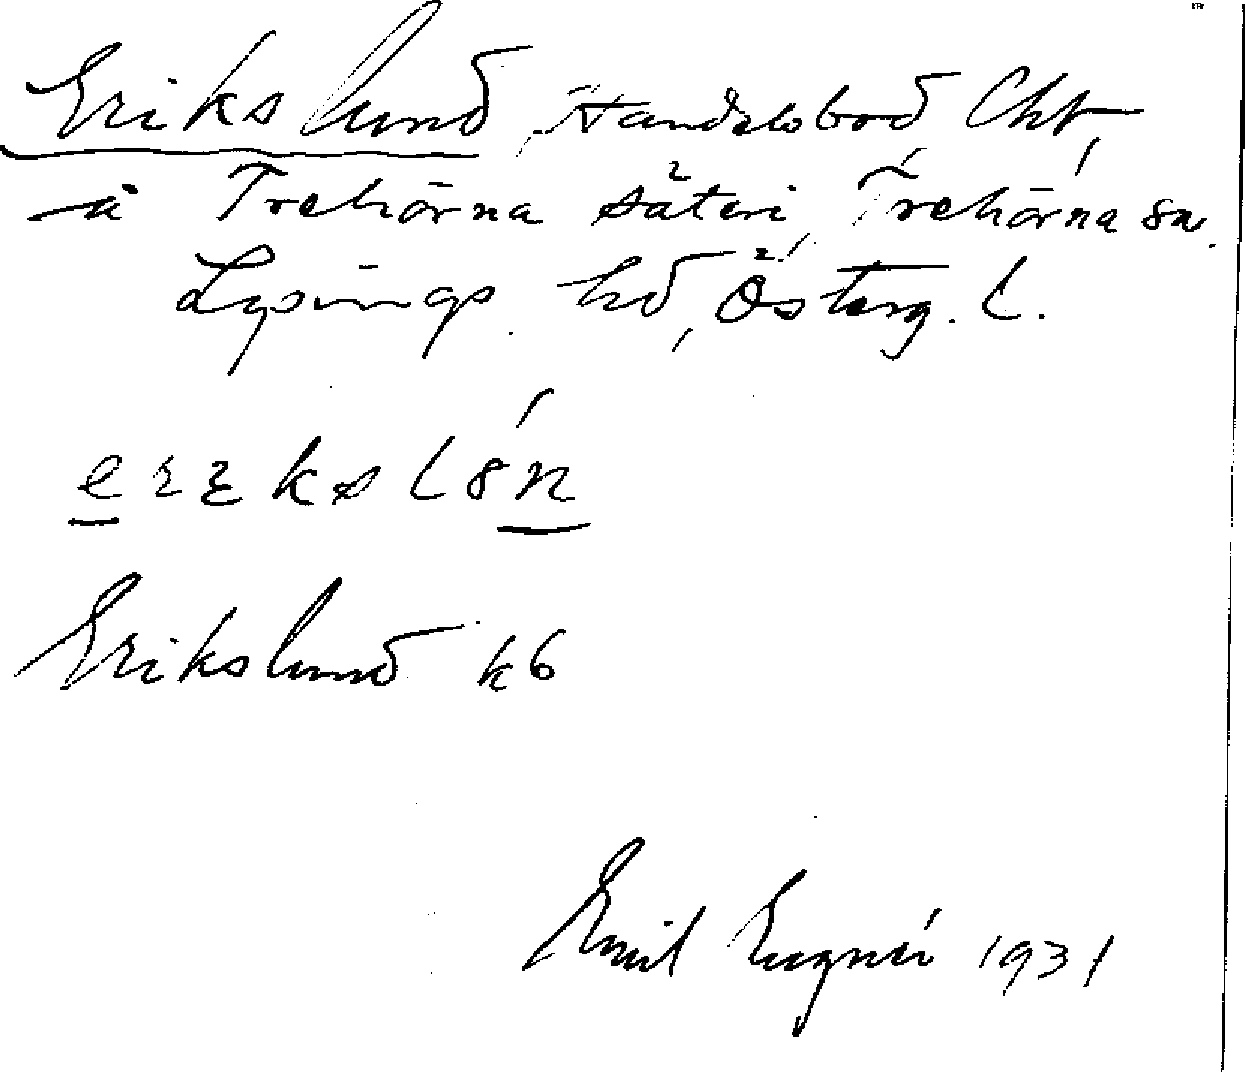 Erikslund, Handelsbod Cht,
å Trehörna säteri, Trehörna sn.
Lysings hd, Österg. L.
erekslón
Erikslund k6
Emil 1931